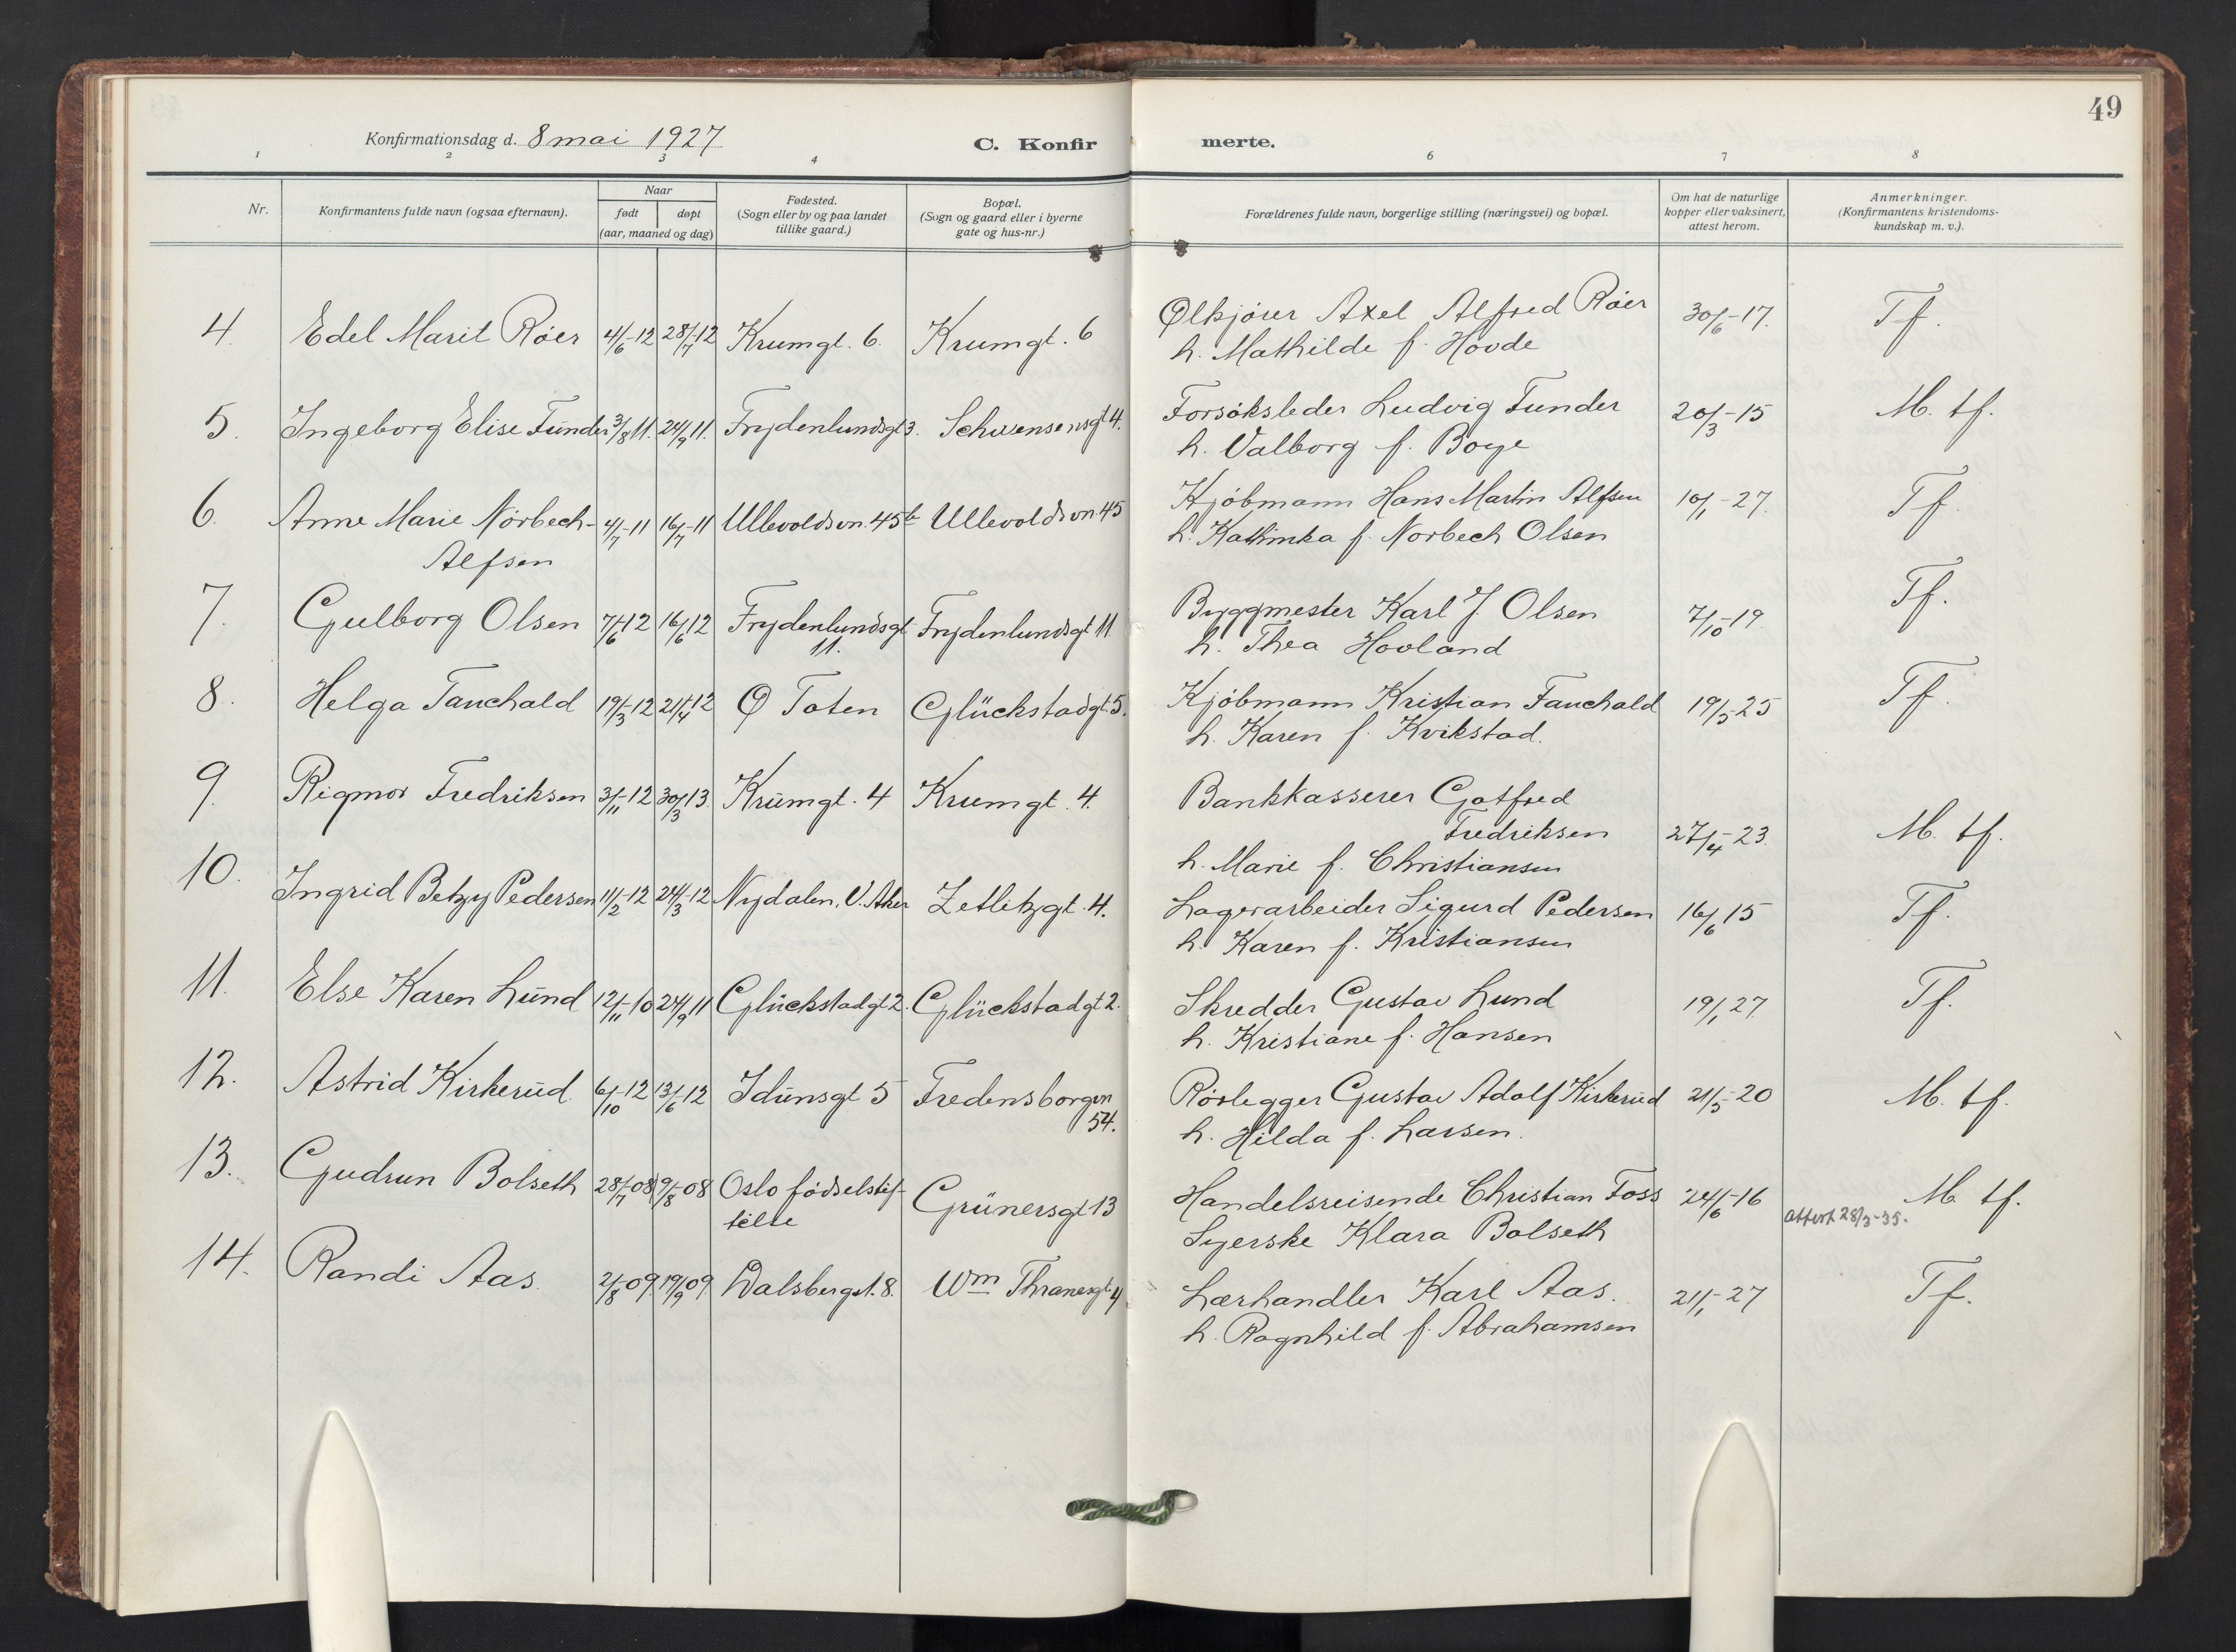 49
Konfirmationsdag d. 8 mai 1927
C. Konfir merte.
1 2 3 4 6 7 8
Nr.
Konfirmantens fulde navn (ogsaa efternavn).
Naar
født døpt
(aar, maaned og dag)
Fødested.
(Sogn eller by og paa landet
tillike gaard.)
Bopæl.
(Sogn og gaard eller i byerne
gate og hus-nr.)
Forældrenes fulde navn, borgerlige stilling (næringsvei) og bopæl.
Om hat de naturlige
kopper eller vaksinert,
attest herom.
Anmerkninger.
(Konfirmantens kristendoms-
kundskap m. v.).
4. Edel Marit Röer 4/6-12 28/7-12 Krumgt. 6. Krumgt. 6 Ölkjörer Axel Alfred Röer 30/6-17. Tf.
h. Mathilde f. Hovde
5. Ingeborg Elise Funder 3/8 11. 24/9 11. Frydenlundsgt 3. Schwensensgt 4. Forsöksleder Ludvig Funder 20/3-15 M. tf.
h. Valborg f. Boye
6. Anne Marie Nörbech- 4/7-11 16/7-11 Ullevoldsvn. 45b Ullevoldsvn. 45 Kjöbmann Hans Martin Alfsen 10/1-27. Tf.
Alfsen h. Kathinka f. Norbech Olsen
7. Gulborg Olsen 7/6-12 16/6-12 Frydenlundsgt Frydenlundsgt 11 Byggmester Karl J. Olsen 7/10-19 Tf.
11. h. Thea Hovland
8. Helga Fauchald 19/3-12 21/4-12 Ø Toten Glückstadgt. 5. Kjöbmann Kristian Fauchald 19/5-25 Tf.
h. Karen f. Kvikstad.
9. Rigmor Fredriksen 3/11-12 30/3-13. Krumgt. 4 Krumgt. 4. Bankkasserer Gotfred
Fredriksen 27/4-23. M. tf.
h. Marie f. Christiansen
10. Ingrid Betzy Pedersen 11/2-12 24/3-12 Nydalen, V. Aker Zetlitzgt. 4. Lagerarbeider Sigurd Pedersen 16/6 15 Tf.
h. Karen f. Kristiansen
11. Else Karen Lund 12/11-10 24/9 11 Glückstadgt 2. Glückstadgt 2. Skredder Gustav Lund 19/1 27 Tf.
h. Kristiane f. Hansen
12. Astrid Kirkerud 6/10-12 13/6-12 Idunsgt 5 Fredensborgvn Rörlegger Gustav Adolf Kirkerud 21/5-20 M. tf.
54. h. Hilda f. Larsen.
13. Gudrun Bolseth 28/7-08 9/8-08 Oslo födselstif- Grünersgt 13 Handelsreisende Christian Foss 24/6-16 M. tf.
telse Syerske Klara Bolseth attest 28/3-35.
14. Randi Aas. 2/8-09. 19/9 09. Dalsbergst. 8. Wm Thranesgt 4 Lærhandler Karl Aas. 21/1-27 Tf.
h. Ragnhild f. Abrahamsen